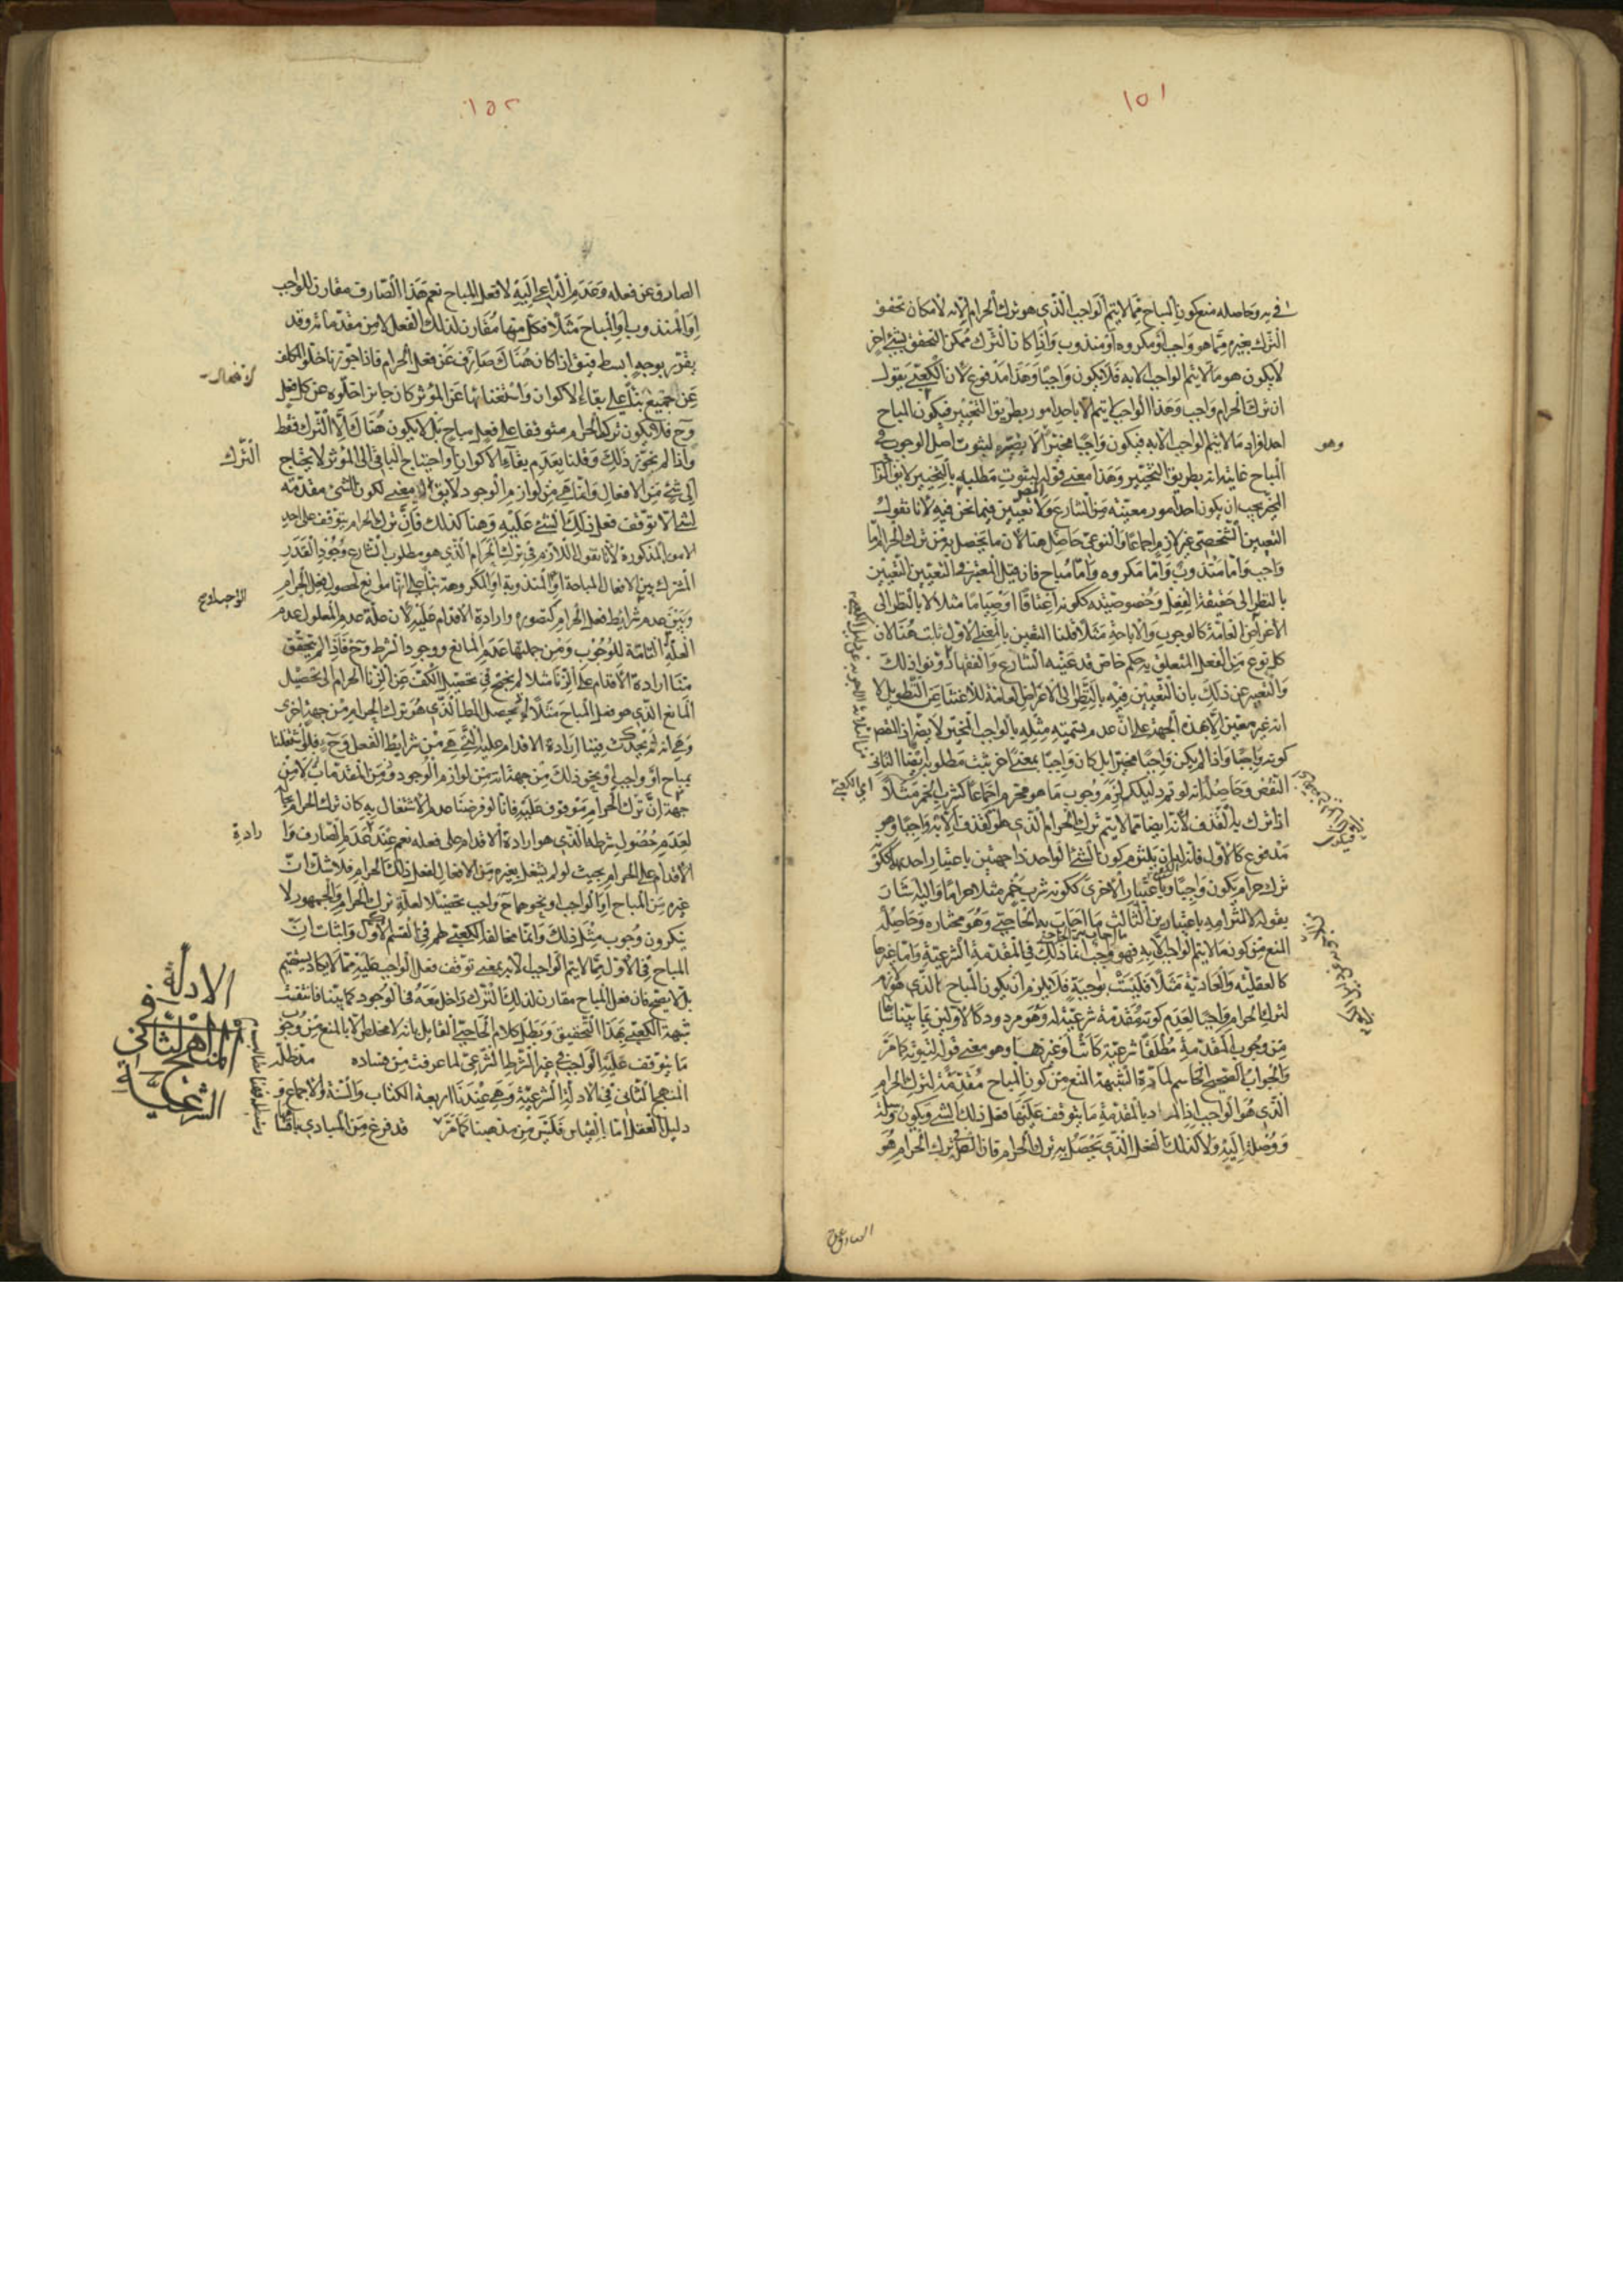 ١٥١
في به وحاصله منع كون المباح مما لا يتم الواجب الذي هو ترك الحرام الا به لامكان تحقق
الترك بغيره مما هو واجب او مكروه او مندوب واذا كان الترك ممكن التحقق بشيء اخر
لا يكون هو ما لا يتم الواجب الا به فلا يكون واجبا وهذا مدفوع لان الكعبي يقول
ان ترك الحرام واجب وهذا الواجب لا يتم الا باحد امور بطريق التخيير فيكون المباح
احد افراد ما لا يتم الواجب الا به فيكون واجبا مخيرا لا يضره لثبوت اصل الوجوب في
وهو
المباح غايته انه بطريق التخيير وهذا معنى قوله لثبوت مطلبه بالتخيير لا يقال
المخير يجب ان يكون احد امور معينة من الشارع ولا تعيين فيما نحن فيه لانا نقول
التعيين الشخصي غير لازم اجماعا والنوعي حاصل هنا لان ما يحصل به من ترك الحرام اما
واجب واما مندوب واما مكروه واما مباح فان قيل المعتبر في التعيين التعيين
بالنظر الى حقيقة الفعل وخصوصيته ككونه اعتاقا او صياما مثلا لا بالنظر الى
الاعراض العامة كالوجوب والاباحة مثلا قلنا التعيين بالمعنى الاول ثابت هنا لان
كل نوع من الفعل المتعلق به حكم خاص قد عينه الشارع والفقهاء دونوا ذلك
والتعبير عن ذلك بان التعيين فيه بالنظر الى الاعراض العامة للاغتناء عن التطويل لا
انه غير معين الا بهذه الجهة على ان عدم تسميته مثله بالواجب المخير لا يضر
كونه واجبا واذا لم يكن واجبا مخيرا بل كان واجبا بمعنى اخر يثبت مطلوبه ايضا الثاني
النقض وحاصله انه لو تم دليلكم لزم وجوب ما هو محرم اجماعا كشرب الخمر مثلا
اي الكعبي
اذا ترك به القذف لانه ايضا مما لا يتم ترك الحرام الذي هو القذف الا به واجبا وهو
مدفوع كالاول فانه له ان يلتزم كون الشيء الواحد ذا جهتين باعتبار احدهما ككونه
ترك حرام يكون واجبا وباعتبار الاخرى ككونه شرب خمر مثلا حراما واليه اشار
بقوله لالتزامه باعتبارين الثالث ما اجاب به الحاجبي وهو مختاره وحاصله
المنع من كون ما لا يتم الواجب الا به فهو واجب انما ذلك في المقدمة الشرعية واما غيرها
كالعقلية والعادية مثلا فليست بواجبة فلا يلزم ان يكون المباح الذي هو لازم
لترك الحرام واجبا لعدم كونه مقدمة شرعية له وهو مردود كالاولين بما بيناه سابقا
من وجوب المقدمة مطلقا شرعية كانت او غيرها وهو معنى قوله لثبوته كما مر
والجواب الصحيح الحاسم لمادة الشبهة المنع من كون المباح مقدمة لترك الحرام
الذي هو الواجب اذ المراد بالمقدمة ما يتوقف عليها فعل ذلك الشيء ويكون
ووصلة اليه ولا كذلك الفعل الذي يحصل به ترك الحرام فان الاصل في ترك الحرام هو
الصارف عن
١٥٢
الصارف عن فعله وعدم الداعي اليه لا فعل المباح نعم هذا الصارف مقارن للواجب
او المندوب او المباح مثلا فكل منها مقارن لذلك الفعل لا من مقدماته وقد
يقرر بوجه ابسط فيق اذا كان هناك صارف عن فعل الحرام فاذا جوزنا خلو المكلف
عن جميع الافعال بناء على بقاء الاكوان واستغنائها عن المؤثر كان جائزا خلوه عن كل فعل
وح فلا يكون ترك الحرام متوقفا على فعل مباح بل لا يكون هناك الا الترك فقط
واذا لم نجوز ذلك وقلنا بعدم بقاء الاكوان واحتياج الباقي الى المؤثر لا يحتاج
الترك
الى شيء من الافعال وانما هي من لوازم الوجود لا يق لا معنى لكون الشيء مقدمة
لشيء الا توقف فعل ذلك الشيء عليه وهنا كذلك فان ترك الحرام يتوقف على احد
الامور المذكورة لانا نقول اللازم في ترك الحرام الذي هو مطلوب الشارع وجود القدر
المشترك بين الافعال المباحة او المندوبة او المكروهة بناء على انها موانع لحصول فعل الحرام
وبين عدم شرائط فعل الحرام كتصوره وارادة الاقدام عليه لان علة عدم المعلول عدم
العلة التامة للوجوب ومن جملتها عدم المانع ووجود الشرط وح فاذا لم يتحقق
منا ارادة الاقدام على الزنا مثلا لم نحتج في تحصيل الكف عن الزنا الحرام الى تحصيل
المانع الذي هو فعل المباح مثلا لحصول المط الذي هو ترك الحرام من جهة اخرى
وهي انه لم يحدث فينا ارادة الاقدام عليه التي هي من شرايط الفعل وح فلو اشتغلنا
بمباح او واجب او نحو ذلك من جهة انه من لوازم الوجود ومن المقدمات لا من
جهة ان ترك الحرام موقوف عليه فانا لو فرضنا عدم الاشتغال به كان ترك الحرام بحاله
لعدم حصول شرطه الذي هو ارادة الاقدام على فعله نعم عند عدم الصارف وارادة
الاقدام على الحرام بحيث لو لم يشغل بغيره من الافعال لفعل ذلك الحرام فلا شك ان
غيره من المباح او الواجب او نحوهما ح واجب تحصيلا لعلة ترك الحرام والجمهور لا
ينكرون وجوب مثل ذلك وانما مخالفة الكعبي لهم في القسم الاول واثبات ان
المباح في الاول مما لا يتم الواجب الا به بمعنى توقف فعل الواجب عليه مما لا يكاد يستقيم
بل لا يصح فان فعل المباح مقارن لذلك الترك داخل معه في الوجود كما بينا فانتفت
شبهة الكعبي بهذا التحقيق وبطل كلام الحاجبي القائل بانه لا مخلص الا بالمنع من وجوب
ما يتوقف عليه الواجب في غير الشرط الشرعي لما عرفت من فساده مد ظله
المنهج الثاني في الادلة الشرعية وهي عندنا اربعة الكتاب والسنة والاجماع و
دليل العقل اما القياس فليس من مذهبنا كما مر قد فرغ من المبادي باقسامها
المنهج الثاني في الادلة
الشرعية